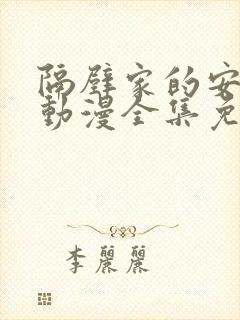 隔壁家的安
動漫全集免
李麗麗